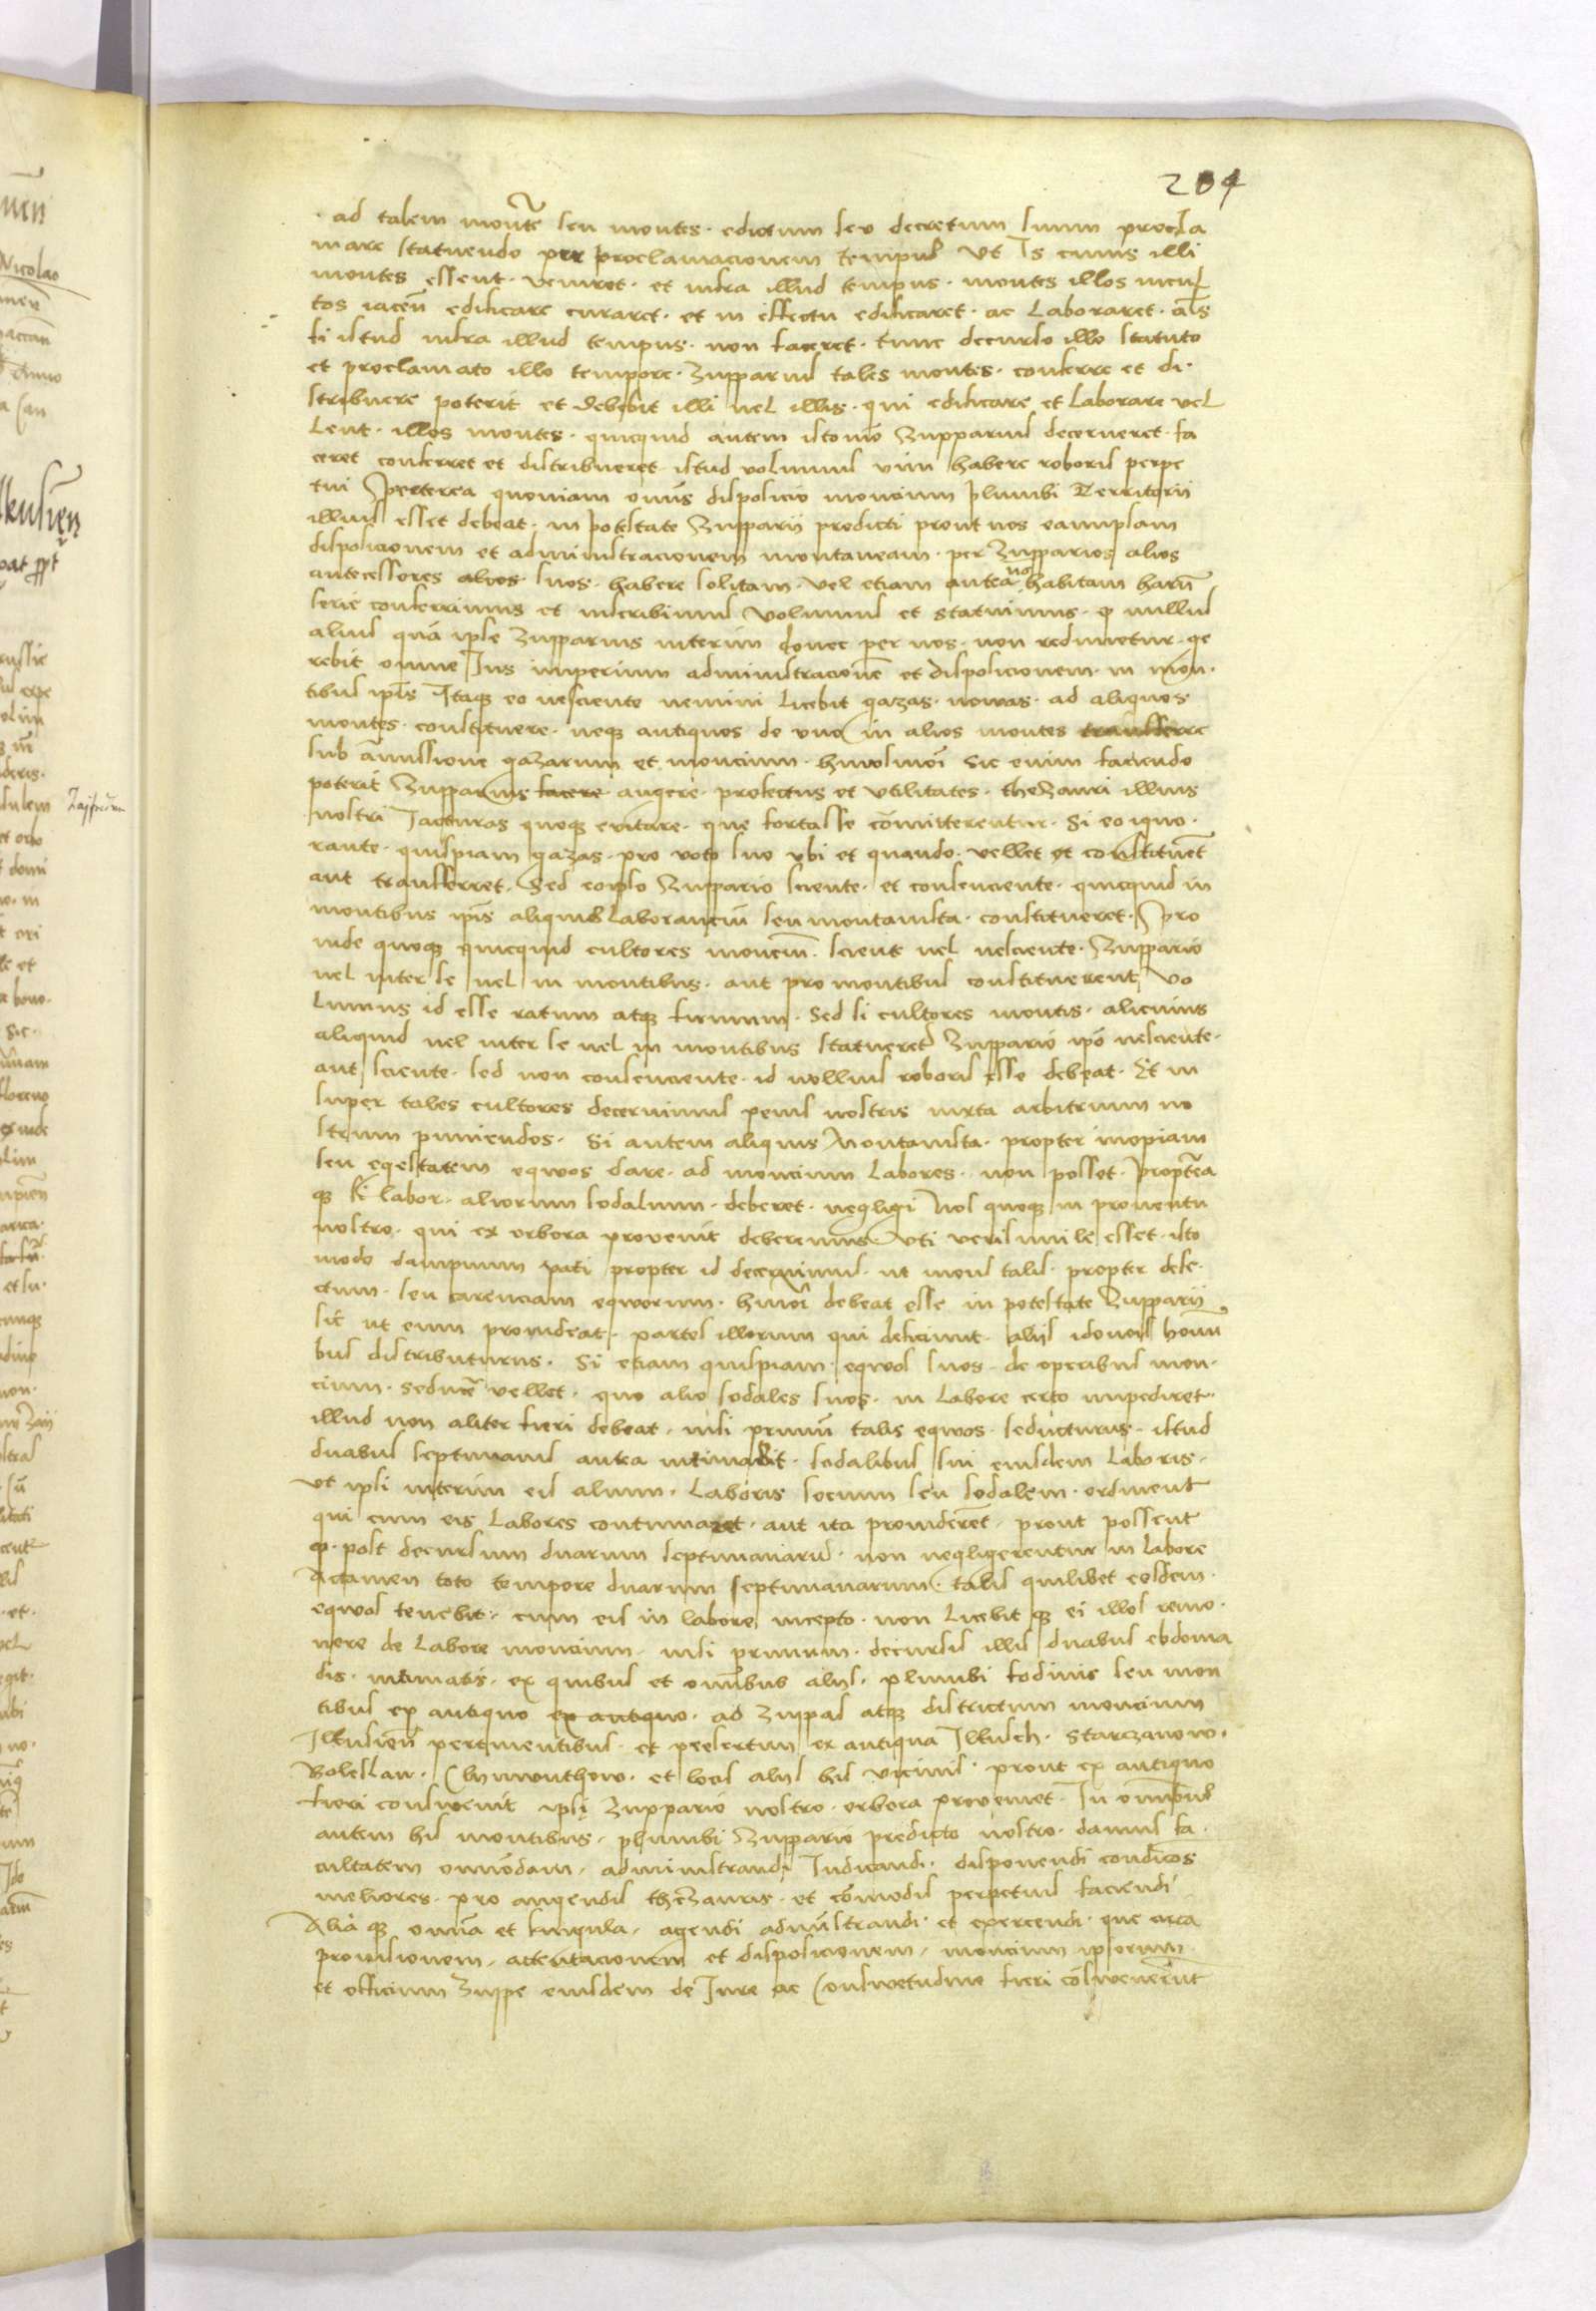 204
ad talem montē seu montes · edictum seu decretum suum procla
mare statuendo per proclamacionem tempus Ut Is cuius illi
montes essent · veniret · et infra illud tempus · montes illos incul
tos iaceñ edificare curaret · et in effectu edificaret · ac Laboraret · als
si istud infra illud tempus · non faceret · tunc decurso illo statuto
et proclamato illo tempore · Zupparius tales montes · conferre et di ·
stribuere poterit et debebit illi vel illis · qui edificare et laborare vel
Lent · illos montes · quicquid autem istomō Zupparius decerneret · fa
ceret conferret et distribueret istud volumus vim habere roboris perpe
tui Preterea quoniam omīs disposicio moncium plumbi Territorii
illius esset debeat · in potestate Zupparii predicti prout nos eamipsam
disposicionem et administracionem montaneam · per Zupparios alios
antecessores alios suos · habere solitam · vel etiam antea nō habitam harū
serie conferimus et inscribimus Volumus et statuimus · q nullus
alius quā ipse Zupparius interim donec per nos · non redimetur · ge
rebit omne Ius imperium administracionē et disposicionem · in mon ·
tibus ipīs Itaq eo nesciente nemini Licebit gazas · novas · ad aliquos
montes · constituere · neq antiquos de uno in alios montes transferre
sub amissione gazarum et moncium · huiusmōi Sic enim faciendo
poterit Zupparius facere augere · profectus et Utilitates · theZauri illius
nostri Iacturas quoq evitare · que fortasse cōmitterentur · Si eo igno ·
rante · quispiam gazas · pro voto suo ubi et quando · vellet et constituēt
aut transferret · Sed eoipso Zuppario sciente · et consenciente · quicquid in
montibus ipīs aliquis Laboranciū seu montanista · constitueret · Pro
inde quoq quicquid cultores monciū · scient vel nesciente · Zuppario
vel inter se vel in montibus · aut pro montibus constituerent Vo
Lumus id esse ratum atq firmum · Sed si cultores montis · alicuius
aliquid vel inter se vel in montibus statueret Zuppario ipō nesciente ·
aut sciente · sed non consenciente · id nullius roboris esse debeat · Et in
super tales cultores decernimus penis nostris iuxta arbitrium no
strum puniendos · Si autem aliquis Montanista · propter inopiam
seu egestatem equos dare · ad moncium Labores · non posset · propterea
q si labor · aliorum sodalium · deberet · negligi Nos quoq in proventu
nostro · qui ex orbora provenit deberemus Uti verisimile esset · isto
modo dampnum pati propter id decernimus · ut mons talis · propter defe ·
ctum · seu carenciam equorum · huiōi debeat esse in potestate Zupparii
sic ut eum provideat · partes illorum qui deficiunt · aliis idoneis homī
bus distributurus · Si etiam quispiam · equos suos · de operibus mon ·
cium · seducē vellet · quo alio sodales suos · in Labore certo impediret ·
illud non aliter fieri debeat · nisi primū talis equos · seducturus · istud
duabus septimanis antea intimabit · sodalibus sui eiusdem Laboris ·
Ut ipsi interim eis alium · Laboris socium seu sodalem · ordinent
qui cum eis Labores continuaret · aut ita providerēt · prout possent
q · post decursum duarum septimanarū · non negligerentur in labore
Attamen toto tempore duarum septimanarum · talis quilibet eosdem
equos tenebit · cum eis in labore incepto · non Licebit q ei illos remo ·
vere de Labore moncium · nisi primum · decursis illis duabus ebdoma
dis · intimatis · ex quibus et omībus aliis · plumbi fodinis seu mon
tibus ex antiquo ex antiquo · ad Zuppas atq districtum moncium
Ilkusieñ pertinentibus · et presertim ex antiqua Ilkusch · Starczanow ·
Boleslaw · et locis aliis his vicinis · prout ex antiquo
fieri consuevit ipsi Zuppario nostro · orbora proveniet · In omībus
autem his montibus · plumbi Zuppario predicto nostro · damus fa ·
cultatem omīmodam · administrandi Iudicandi · disponendi condicōs
meliores · pro augendis theZauris · et cōmodis perpetuis faciendi
Alia q omīa et singula · agendi admīstrandi · et exercendi · que circa
provisionem · attentacionem et disposicionem · moncium ipsorum
et officium Zuppe eiusdem de Iure ac Consuetudine fieri cōsueverūt